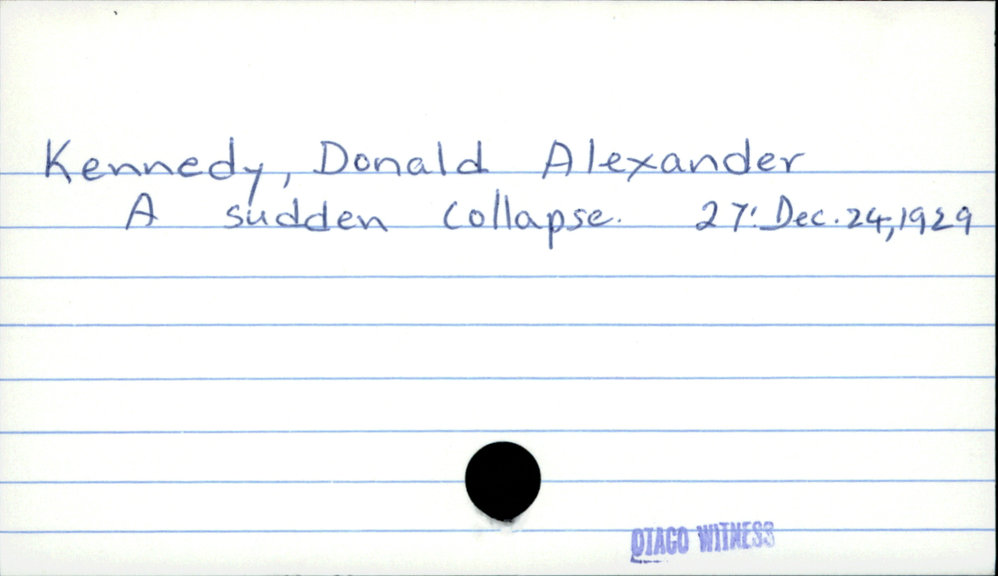 Kennedy, Donald Alexander
A sudden collapse. 27: Dec. 24, 1929
OTAGO WITNESS